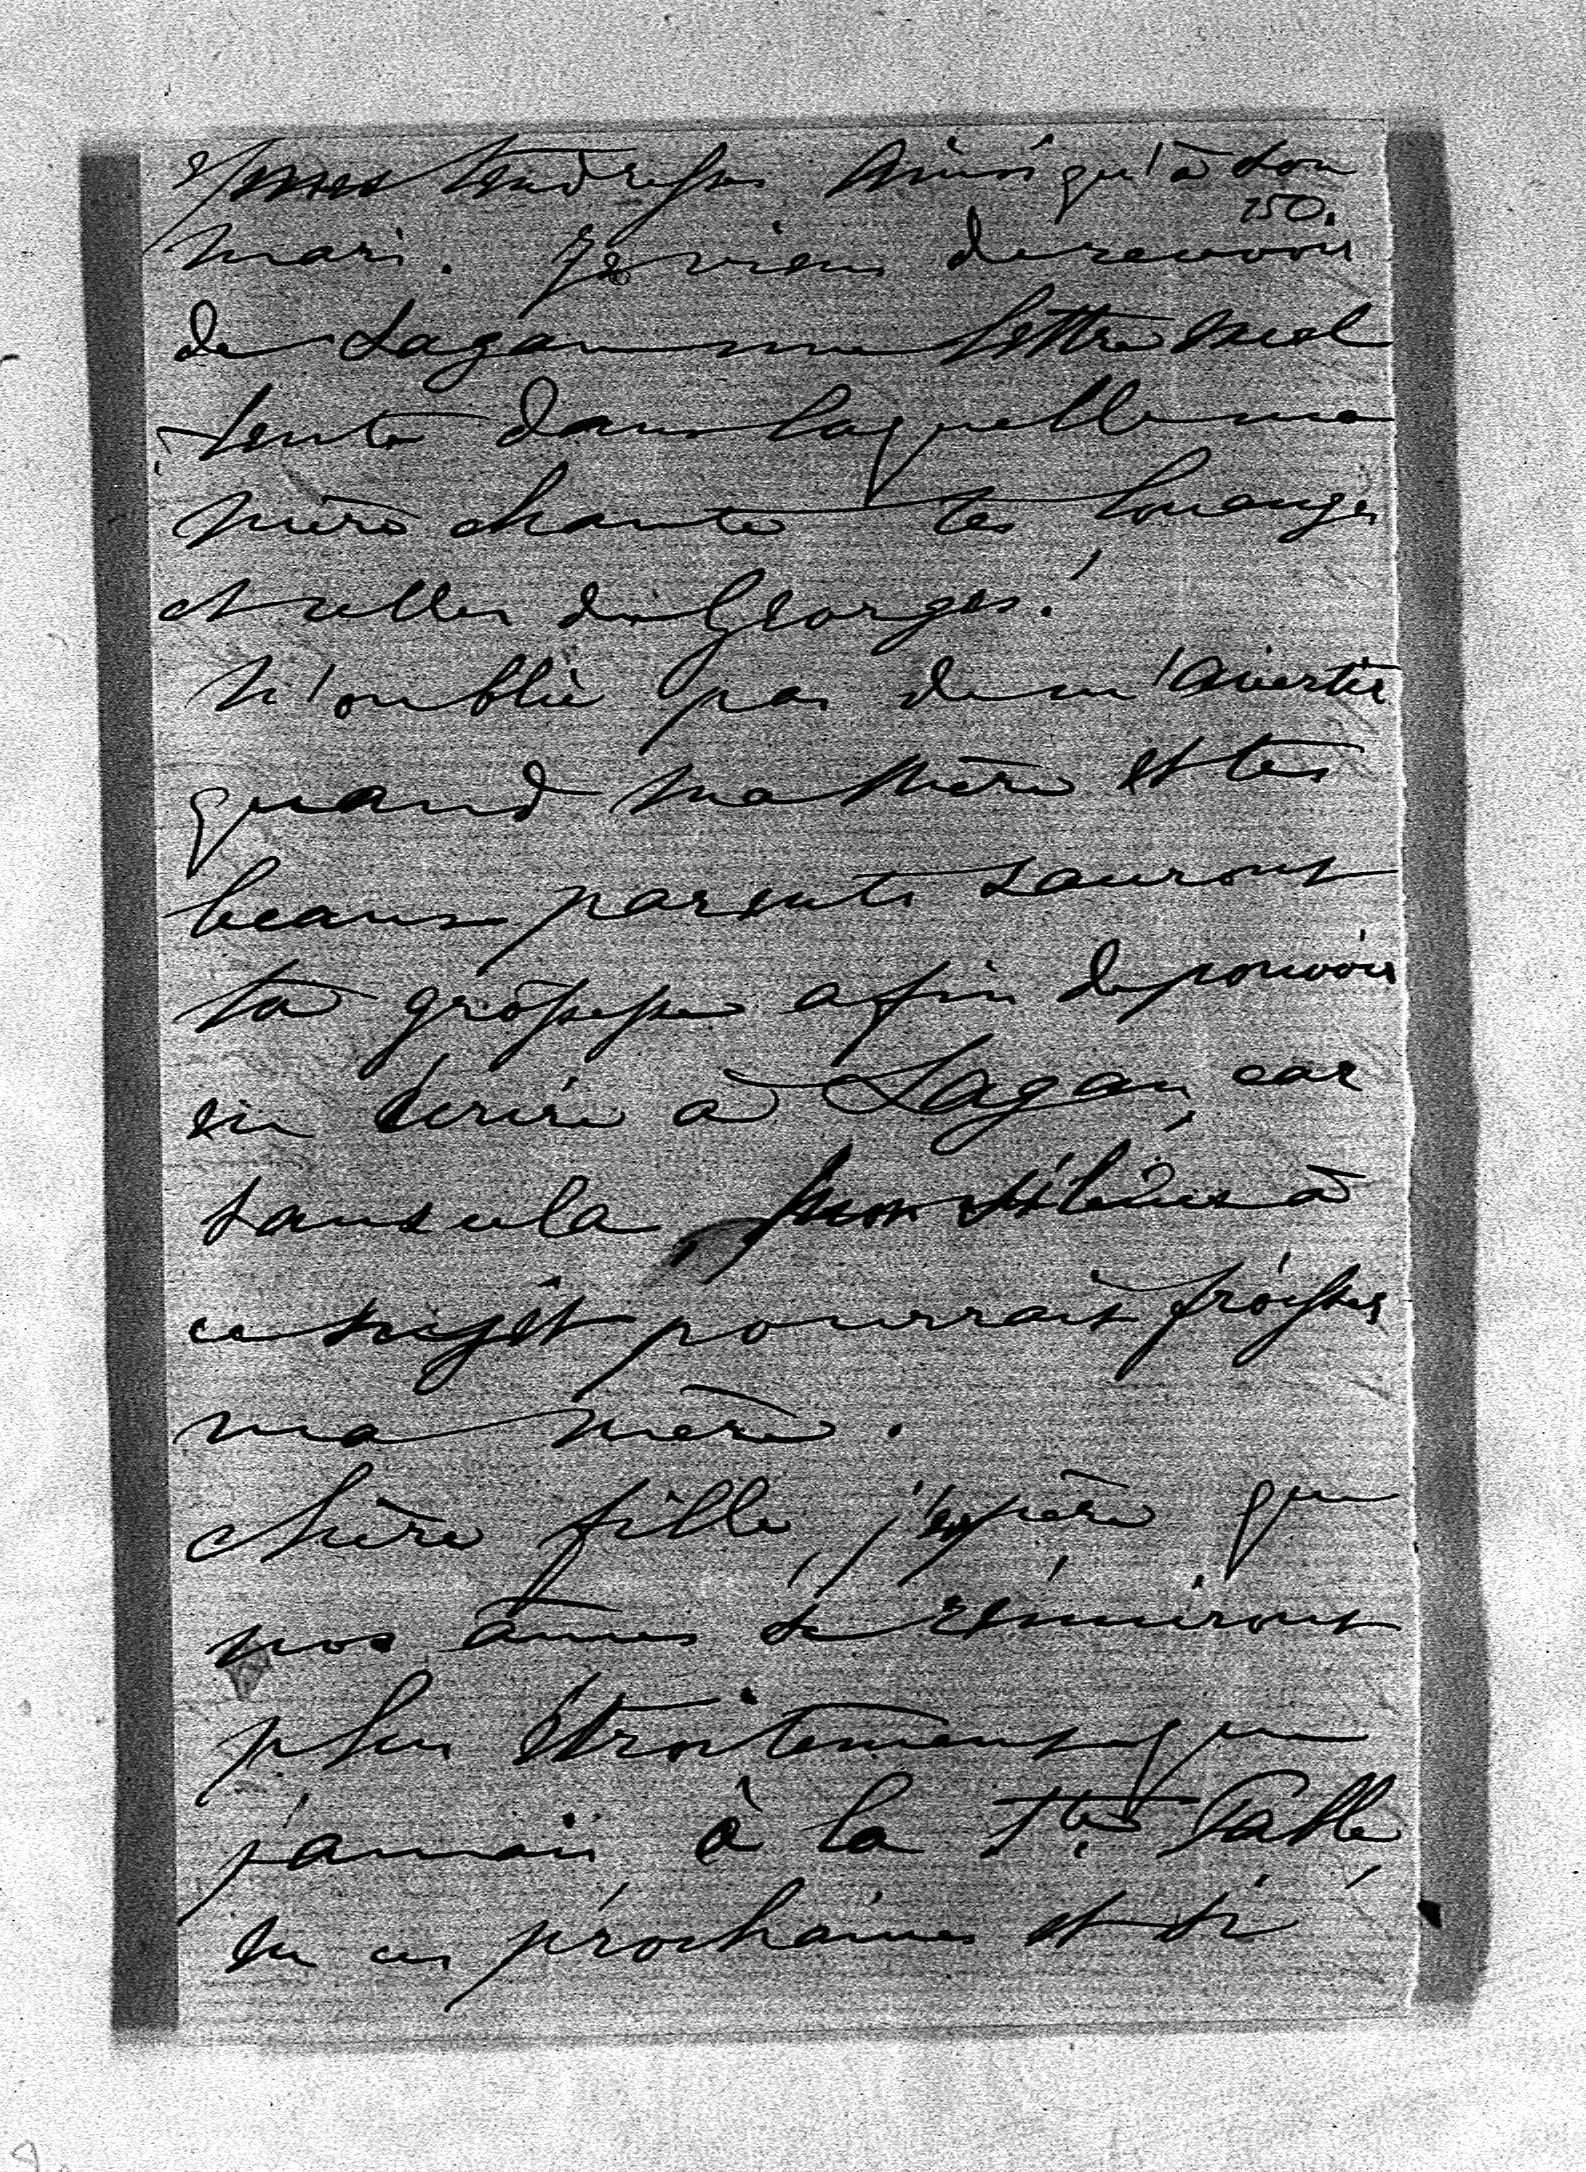 mes tendresses ainsi qu'à son
150.
mari. Je viens de recevoir
de Lagan une lettre excel
lente dans laquelle ma
mère chante tes louanges
et celles de Georges.
N'oublie pas de m'avertir
quand ma mère et tes
beaux parents sauront
ta grossesse afin de pouvoir
en écrire à Lagan, car
sans cela, mon silence à
ce sujet pourrait froisser
ma mère.
Chère fille, j'espère que
nos âmes se réuniront
plus étroitement que
jamais à la Ste Table
en ces prochaines et si